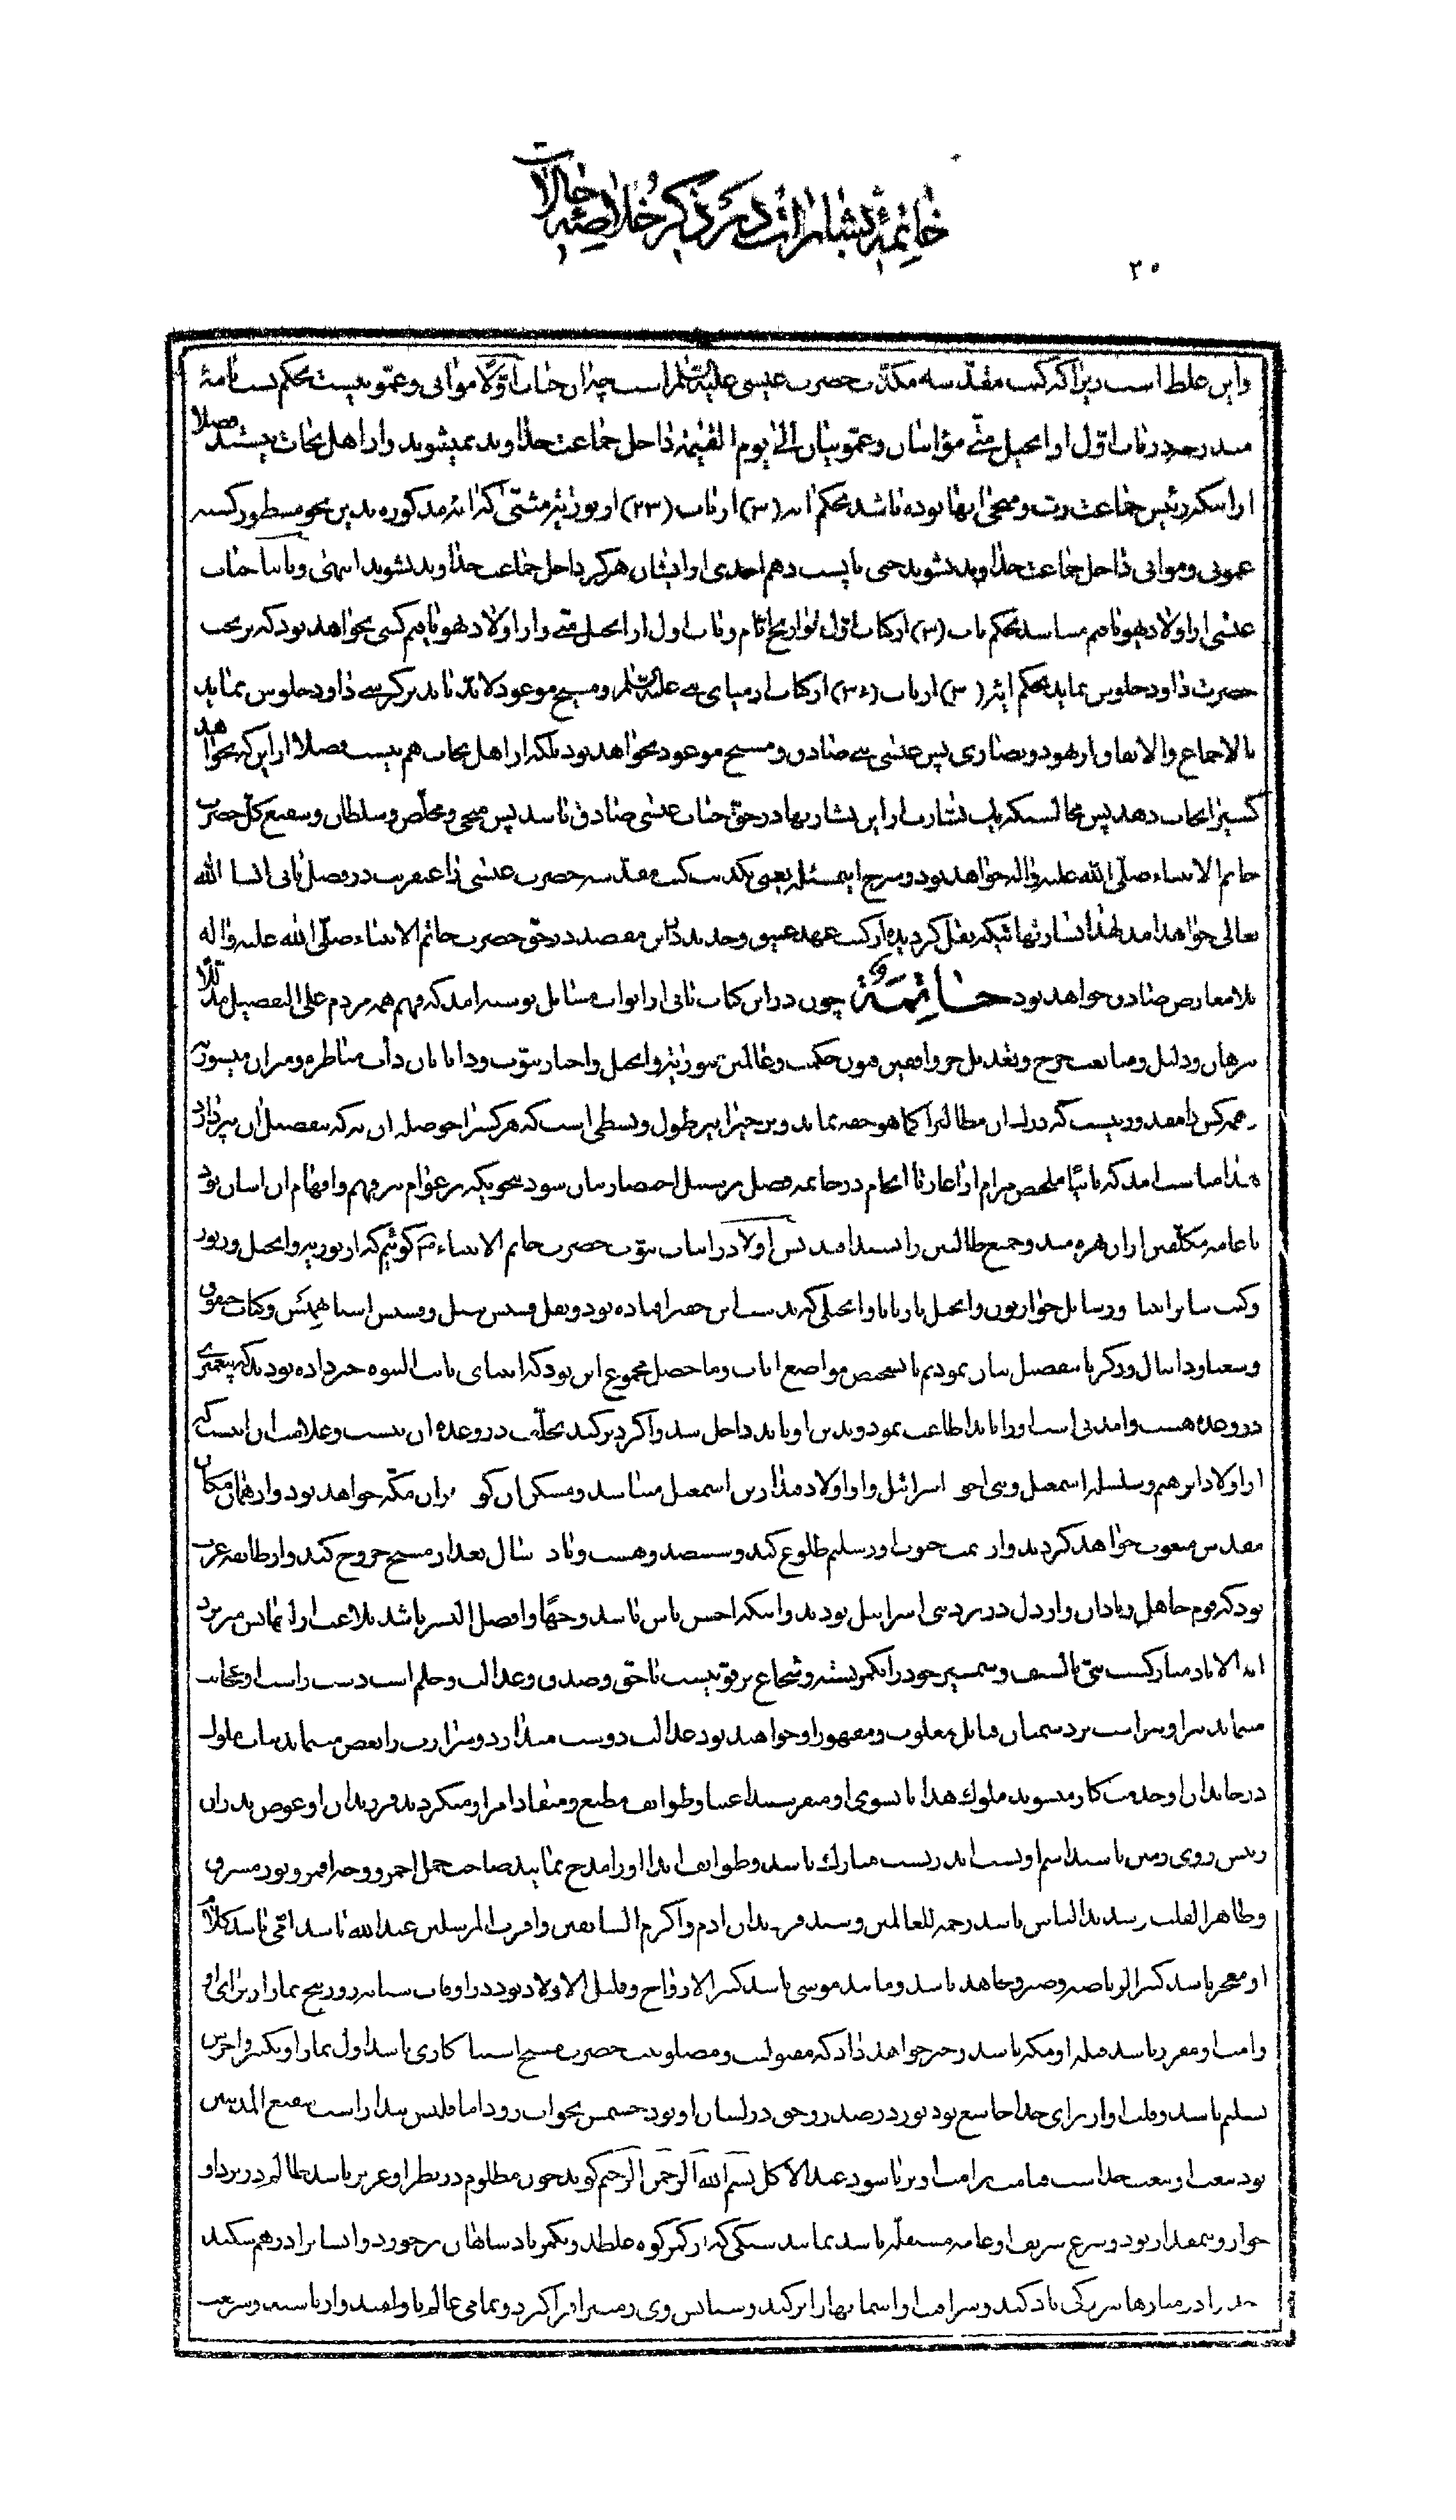 خاتمه بشارات در ذکر خلاصه حالات
۲۰
و این غلط است زیرا که کتب مقدسه مکذب حضرت عیسی علیه السلام است چه ان جناب اولا موابی و عمونیست بحکم نسب نامهٔ
مندرجه در باب اول از انجیل متی موابیان و عمونیان الی یوم القیمة داخل جماعت خداوند نمیشوند و از اهل نجات نیستند فضلا
از اینکه رئیس جماعت رب و منجی اینها بوده باشد بحکم ایه (۳) از باب (۲۳) از توریة مثنی که ایه مذکوره بدین نحو مسطور گشته
عمونی و موابی داخل جماعت خداوند نشوند حتی تا پشت دهم احدی از ایشان هرگز داخل جماعت خداوند نشوند انتهی و ثانیا جناب
عیسی از اولاد یهویاقیم میباشد بحکم باب (۳) از کتاب اول تواریخ ایام و باب اول از انجیل متی و از اولاد یهویاقیم کسی نخواهد بود که بر تخت
حضرت داود جلوس نماید بحکم ایه (۳۰) از باب (۳۶) از کتاب ارمیای نبی علیه السلام و مسیح موعود لابد باید بر کرسی داود جلوس نماید
بالاجماع والاتفاق از یهود و نصاری پس عیسی نبی صادق و مسیح موعود نخواهد بود بلکه از اهل نجات هم نیست فضلا از این که بخواهد
کسیرا نجات دهد پس محالست که یک بشارت از این بشارتها در حق جناب عیسی صادق باشد پس منجی و مخلص و سلطان و شفیع کل حضرت
خاتم الانبیاء صلی الله علیه واله خواهد بود و شرح اینمسئله یعنی تکذیب کتب مقدسه حضرت عیسی را عنقریب در فصل ثانی انشا الله
تعالی خواهد امد لهذا بشارتهائیکه نقل گردیده از کتب عهد عتیق و جدید در این مقصد در حق حضرت خاتم الانبیاء صلی الله علیه واله
بلا معارض صادق خواهد بود خاتمة چون در این کتاب ثانی از ابواب مسائل نوشته امد که فهم همه مردم علی التفصیل مدللا
ببرهان و دلیل و صاحب جرح و تعدیل جز واقفین فنون حکمت و عالمین توریة و انجیل و اخبار نبوت و دانایان داب مناظره و میزان میسور نه
همه کس را مقدور نیست که درک ان مطالبرا کما هو حقه نماید و نیز چیز پر طول و بسطی است که هر کسرا حوصله ان نه که بتفصیل ان پردازد
لهذا مناسب امد که ثانیا ملخص مرام از اغاز تا انجام در خاتمه فصل بر سبیل اختصار بیان شود بنحویکه بر عوام نیز فهم و افهام ان اسان بود
تا عامه مکلفین از ان بهره مند و جمیع طالبین را پسند امد پس اولا در اثبات نبوت حضرت خاتم الانبیاء ص گوئیم که از توریة و انجیل و زبور
و کتب سایر انبیا و رسائل حواریون و انجیل بارنابا و انجیلی که بدست این حقیر افتاده بود و بقل قسیس سیل و قسیس اسیا هینکس و کتاب حبقوق
و شعیا و دانیال و زکریا بتفصیل بیان نمودیم با تشخیص مواضع ایات و ما حصل مجموع این بود که انبیای ثابت النبوة خبر داده بودند که پیغمبری
در وعده هست و امدنی است او را باید اطاعت نمود و بدین او باید داخل شد و اگر دیر کند تخلف در وعده ان نیست و علامت ان اینست که
از اولاد ابرهیم و سلسله اسمعیل و بنی اخو اسرائیل و از اولاد قیدار بن اسمعیل میباشد و مسکن ان کوه فاران مکه خواهد بود و از همان مکان
مقدس مبعوث خواهد گردید و از سمت جنوب اورشلیم طلوع کند و ششصد و هشت و یا ده سال بعد از مسیح خروج کند و از طایفه عرب
بود که قوم جاهل و نادان و ارذل در نزد بنی اسرائیل بودند و اینکه احسن ناس باشد وجها و افضل البشر باشد بلاغت از لبهایش میریزد
ابد الاباد مبارکست نبی بالسیف و شمشیر خود را بکمر بسته و شجاع بر قویست با حق و صدق و عدالت و حلم است دست راست او عجایب
مینماید تیر او تیز است بر دشمنان قاتل مغلوب و مقهور او خواهند بود عدالت دوست میدارد و شرارت را بغض مینماید بنات ملوک
در خاندان او خدمتکار میشوند ملوک هدایا بسوی او میفرستند اغنیا و طوایف مطیع و منقاد امر او میگردند فرزندان او عوض پدران
رئیس روی زمین باشند اسم او پشت اندر پشت مبارک باشد و طوایف ابدا او را مدح نمایند صاحب جمل احمر و وجه اقمر و نور مشرق
و طاهر القلب رسد بد الناس باشد رحمة للعالمین و سید فرزندان ادم و اکرم السابقین و اقرب المرسلین عبد الله باشد امی باشد کلام
او معجز باشد کثیر الریاضه و صبر و مجاهد باشد و مانند موسی باشد کثیر الازواج و قلیل الاولاد بود در اوقات شبانه روز پنج نماز از برای او
و امت او مقرر باشد قبله او مکه باشد و خبر خواهد داد که مقتولیت و مصلوبیت حضرت مسیح اشتباه کاری باشد اول نماز او تکبیر و اخرش
تسلیم باشد و قلب او از برای خدا خاشع بود نور در صدر و حق در لسان او بود چشمش بخواب رود اما قلبش بیدار است شفیع المذنبین
بود بیعت او بیعت خداست قیامت بر امت او برپا شود عند الاکل بسم الله الرحمن الرحیم گوید چون مظلوم در نظر او عزیز باشد ظالم در نزد او
خوار و بیمقدار بود و شرع شریف او عامه مستقله باشد نماید سنگی که از کمر کوه غلطد و بکمر پادشاهان برخورد و ایشانرا درهم شکند
خدا را در منارها بزرگی یاد کند و شرافت او اسمانهارا پر کند و ستایش وی زمینرا فرا گیرد و تمامی عالم باو امید وار باشند و شریعت